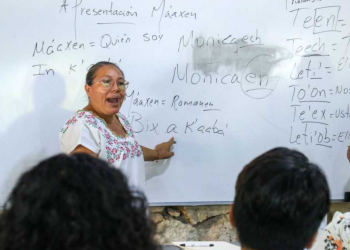 Apresentación Máaxen
Máaxen = Quién soy
In k'
Monicaech
Monicaen
Máaxen = Romanen
Bix a k'aaba'
Teen
Teech
Leti'
To'on = Nos
Te'ex = Ust
Leti'ob =